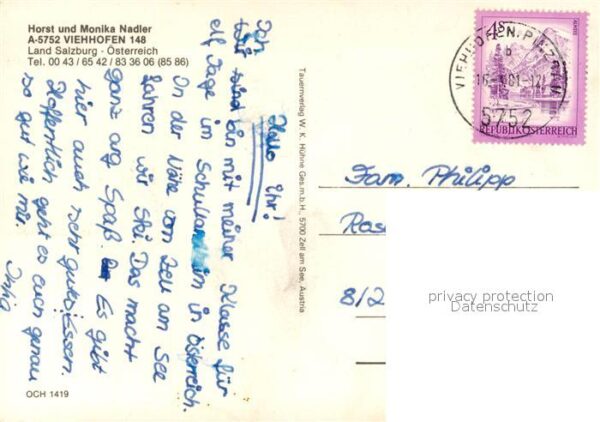 Horst und Monika Nadler
A-5752 VIEHHOFEN 148
Land Salzburg · Österreich
Tel. 00 43 / 65 42 / 83 36 06 (85 86)
Hallo ihr!
Ich bin mit meiner Klasse für
elf Tage im Schulandheim in Österreich.
In der Nähe von Zell am See
fahren wir Ski. Das macht
ganz arg Spaß. Es gibt
hier auch sehr gutes Essen.
Hoffentlich geht es euch genau
so gut wie mir.
OCH 1419
Tauernverlag W. K. Hühne Ges.m.b.H., 5700 Zell am See, Austria
4S
ALMSEE
REPUBLIK ÖSTERREICH
5752
Fam. Philipp
Ras
8/2
privacy protection
Datenschutz